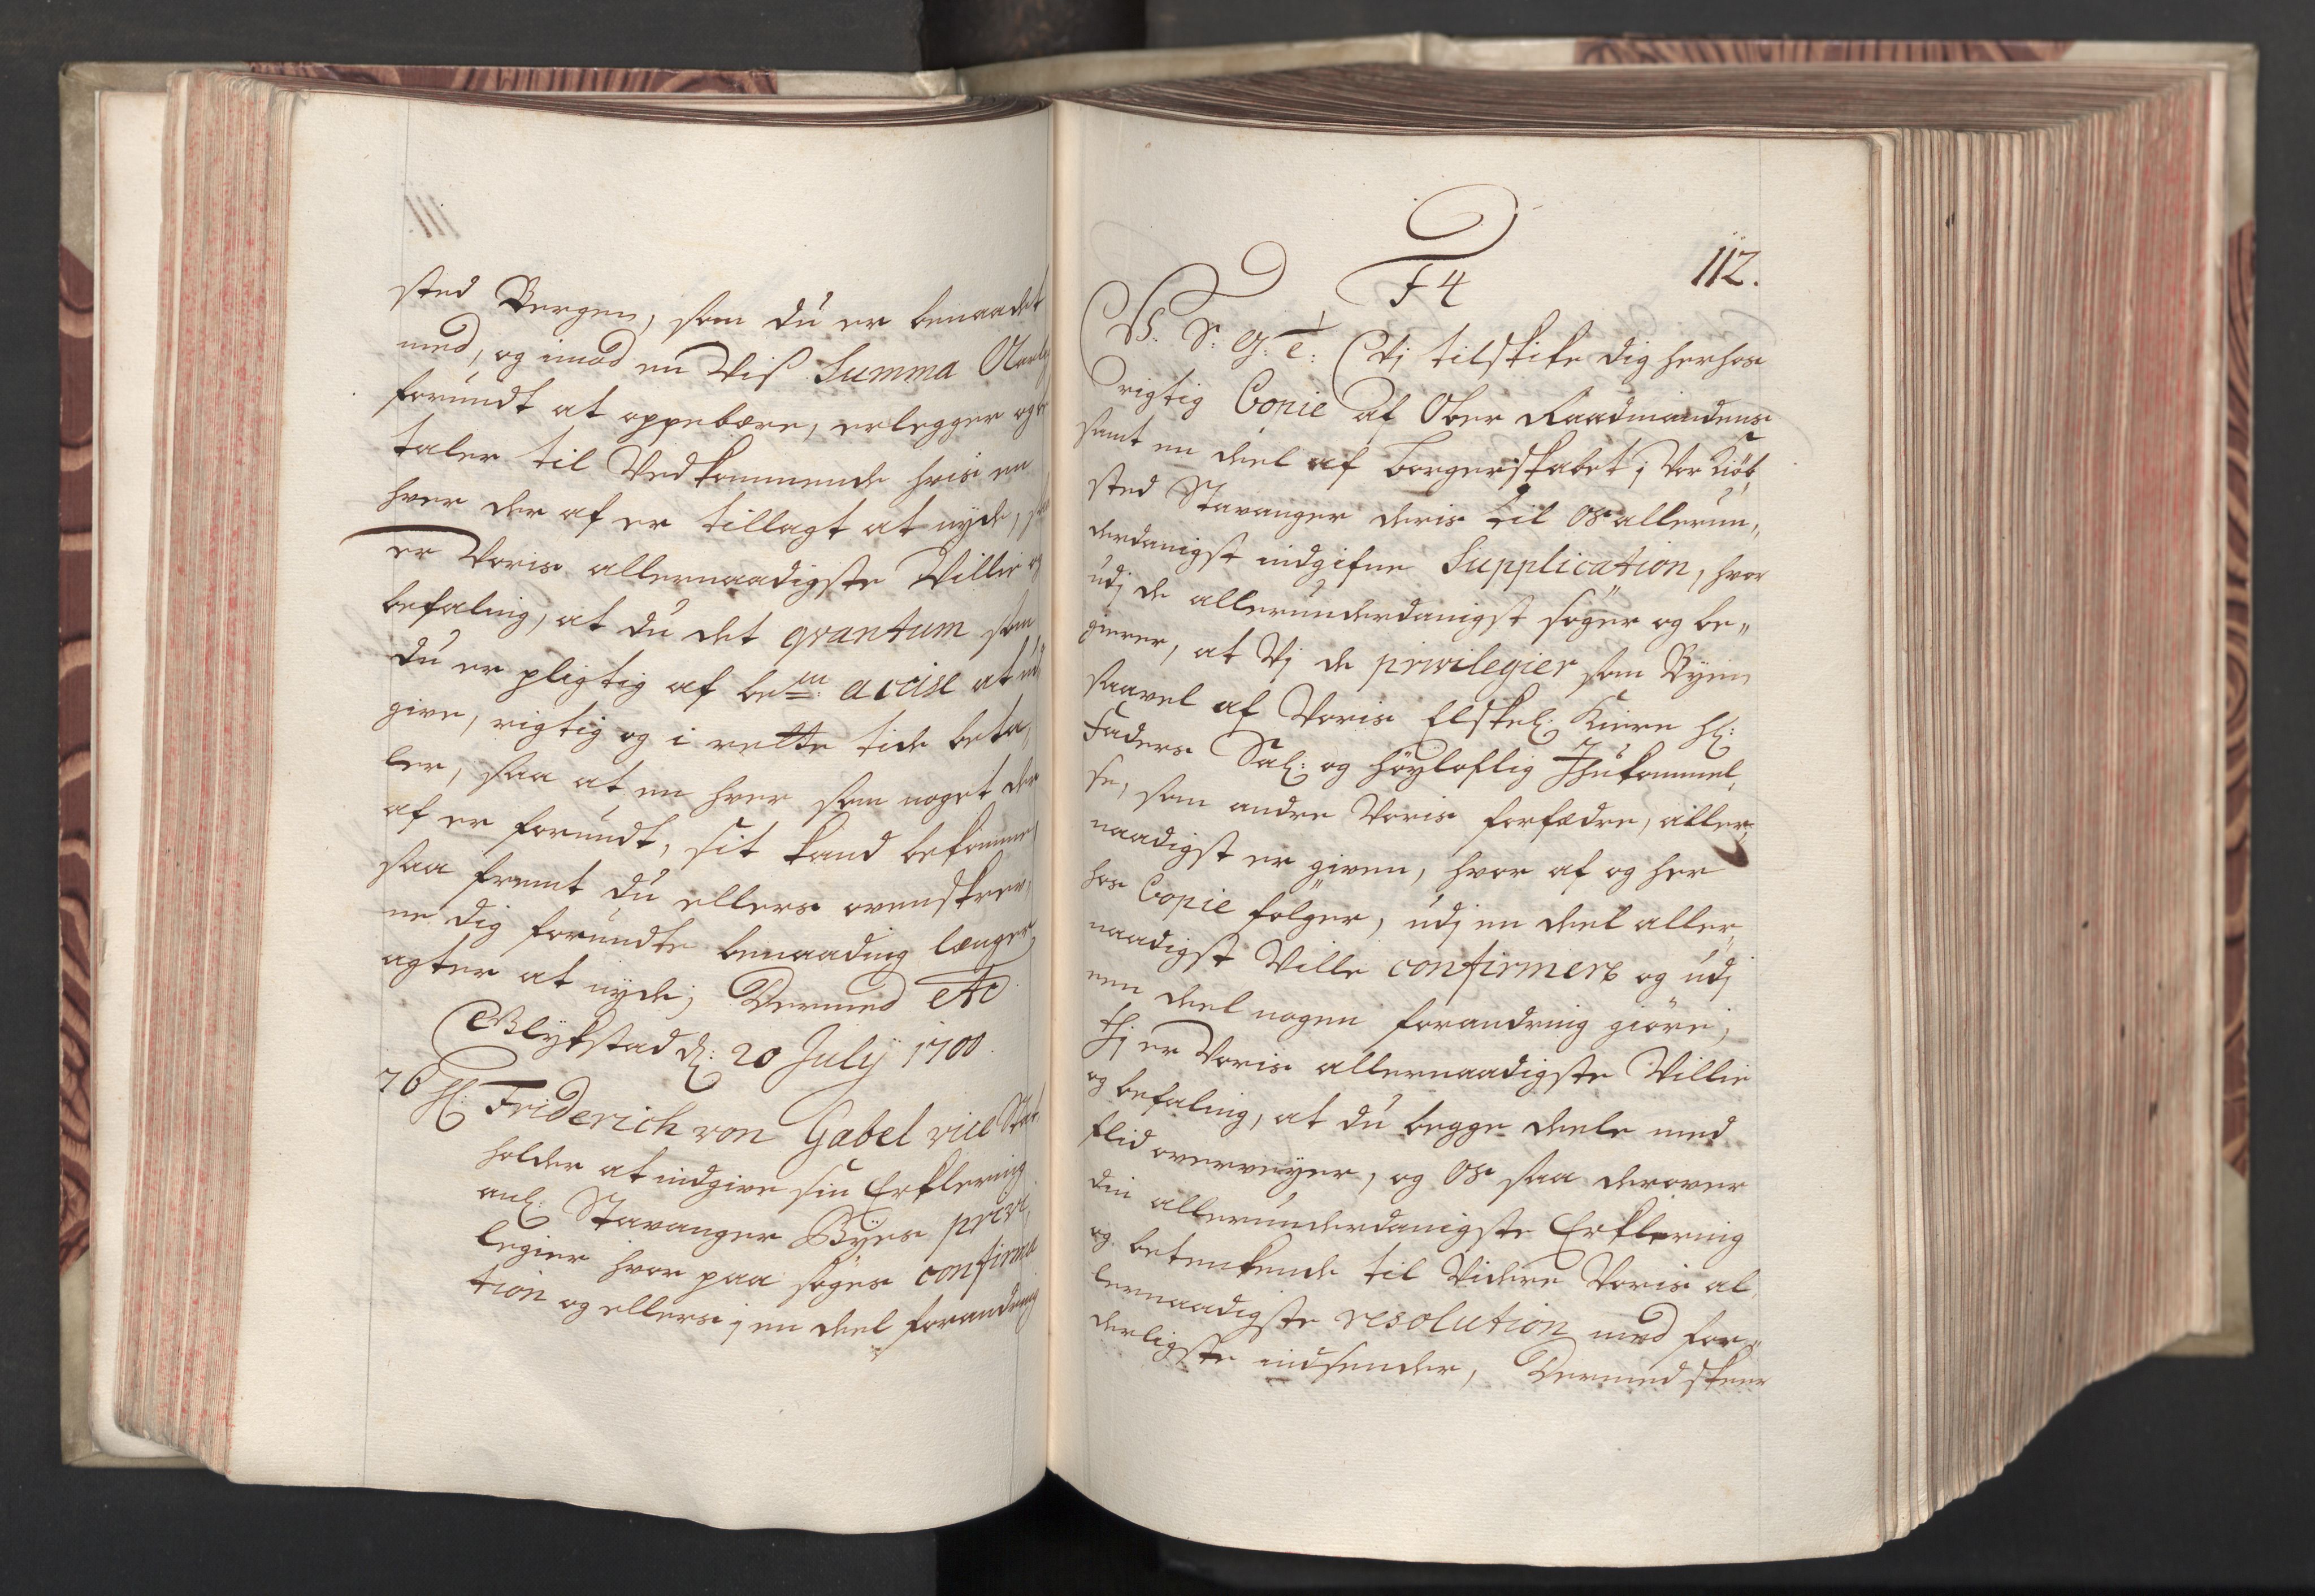 sted Bergen, som du er benaadet
med, og imod en Viß Summa Aarlig
forundt at oppebære, erlegger og be
taler til Vedkommende hvis en
hver der af er tillagt at nyde, saa
er Voris allernaadigste Villie og
befaling, at du det qvantum som
du er pligtig af bem:te accise at ud
give, rigtig og i rette tide beta,,
ler, saa at en hver som noget der
af er forundt, sit kand bekomme,
saa fremt du ellers ovenskrev,,
ne dig forundte benaading længer
agter at nyde; Dermed etc
Glykstad d: 20 July 1700.
76 H: Friderich von Gabel vice Stat
holder at indgive sin Erklering
anl: Stavanger Byes privi,,
legier hvor paa søges confirma
tion og ellers j en deel forandring
F4
112.
V. S: G: T: Vj tilskike dig herhos
rigtig Copie af Ober Raadmandens
samt en deel af borgerskabet j Vor Kiøb,,
sted Stavanger deris til Os allerun,,
derdanigst indgifne Supplication, hvor
udj de allerunderdanigst søger og be,,
gierer, at Vj de privilegier som Byen
saavel af Voris Elskel: Kiere H:
Faders Sal: og høyloflig Ihukommel,,
se, som andre Voris forfædre, aller,,
naadigst er given, hvor af og her
hos Copie følger, udj en deel aller,,
naadigst Ville confirmere og udj
een deel nogen forandring giøre;
Thj er Voris allernaadigste Villie
og befaling, at du begge deele med
flid overveyer, og Os saa derover
din allerunderdanigste Erklering
og betenkende til Videre Voris al,,
lernaadigste resolution med for,,
derligste indsender, Dermed skeer